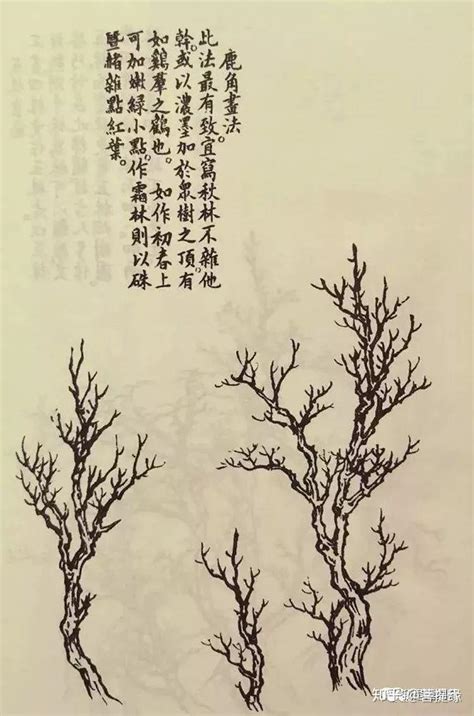 鹿角畫法。
此法最有致。宜寫秋林不雜他
幹。或以濃墨加於眾樹之頂。有
如鷄羣之鶴也。如作初春上
可加嫩綠小點。作霜林則以硃
暨赭雜點紅葉。